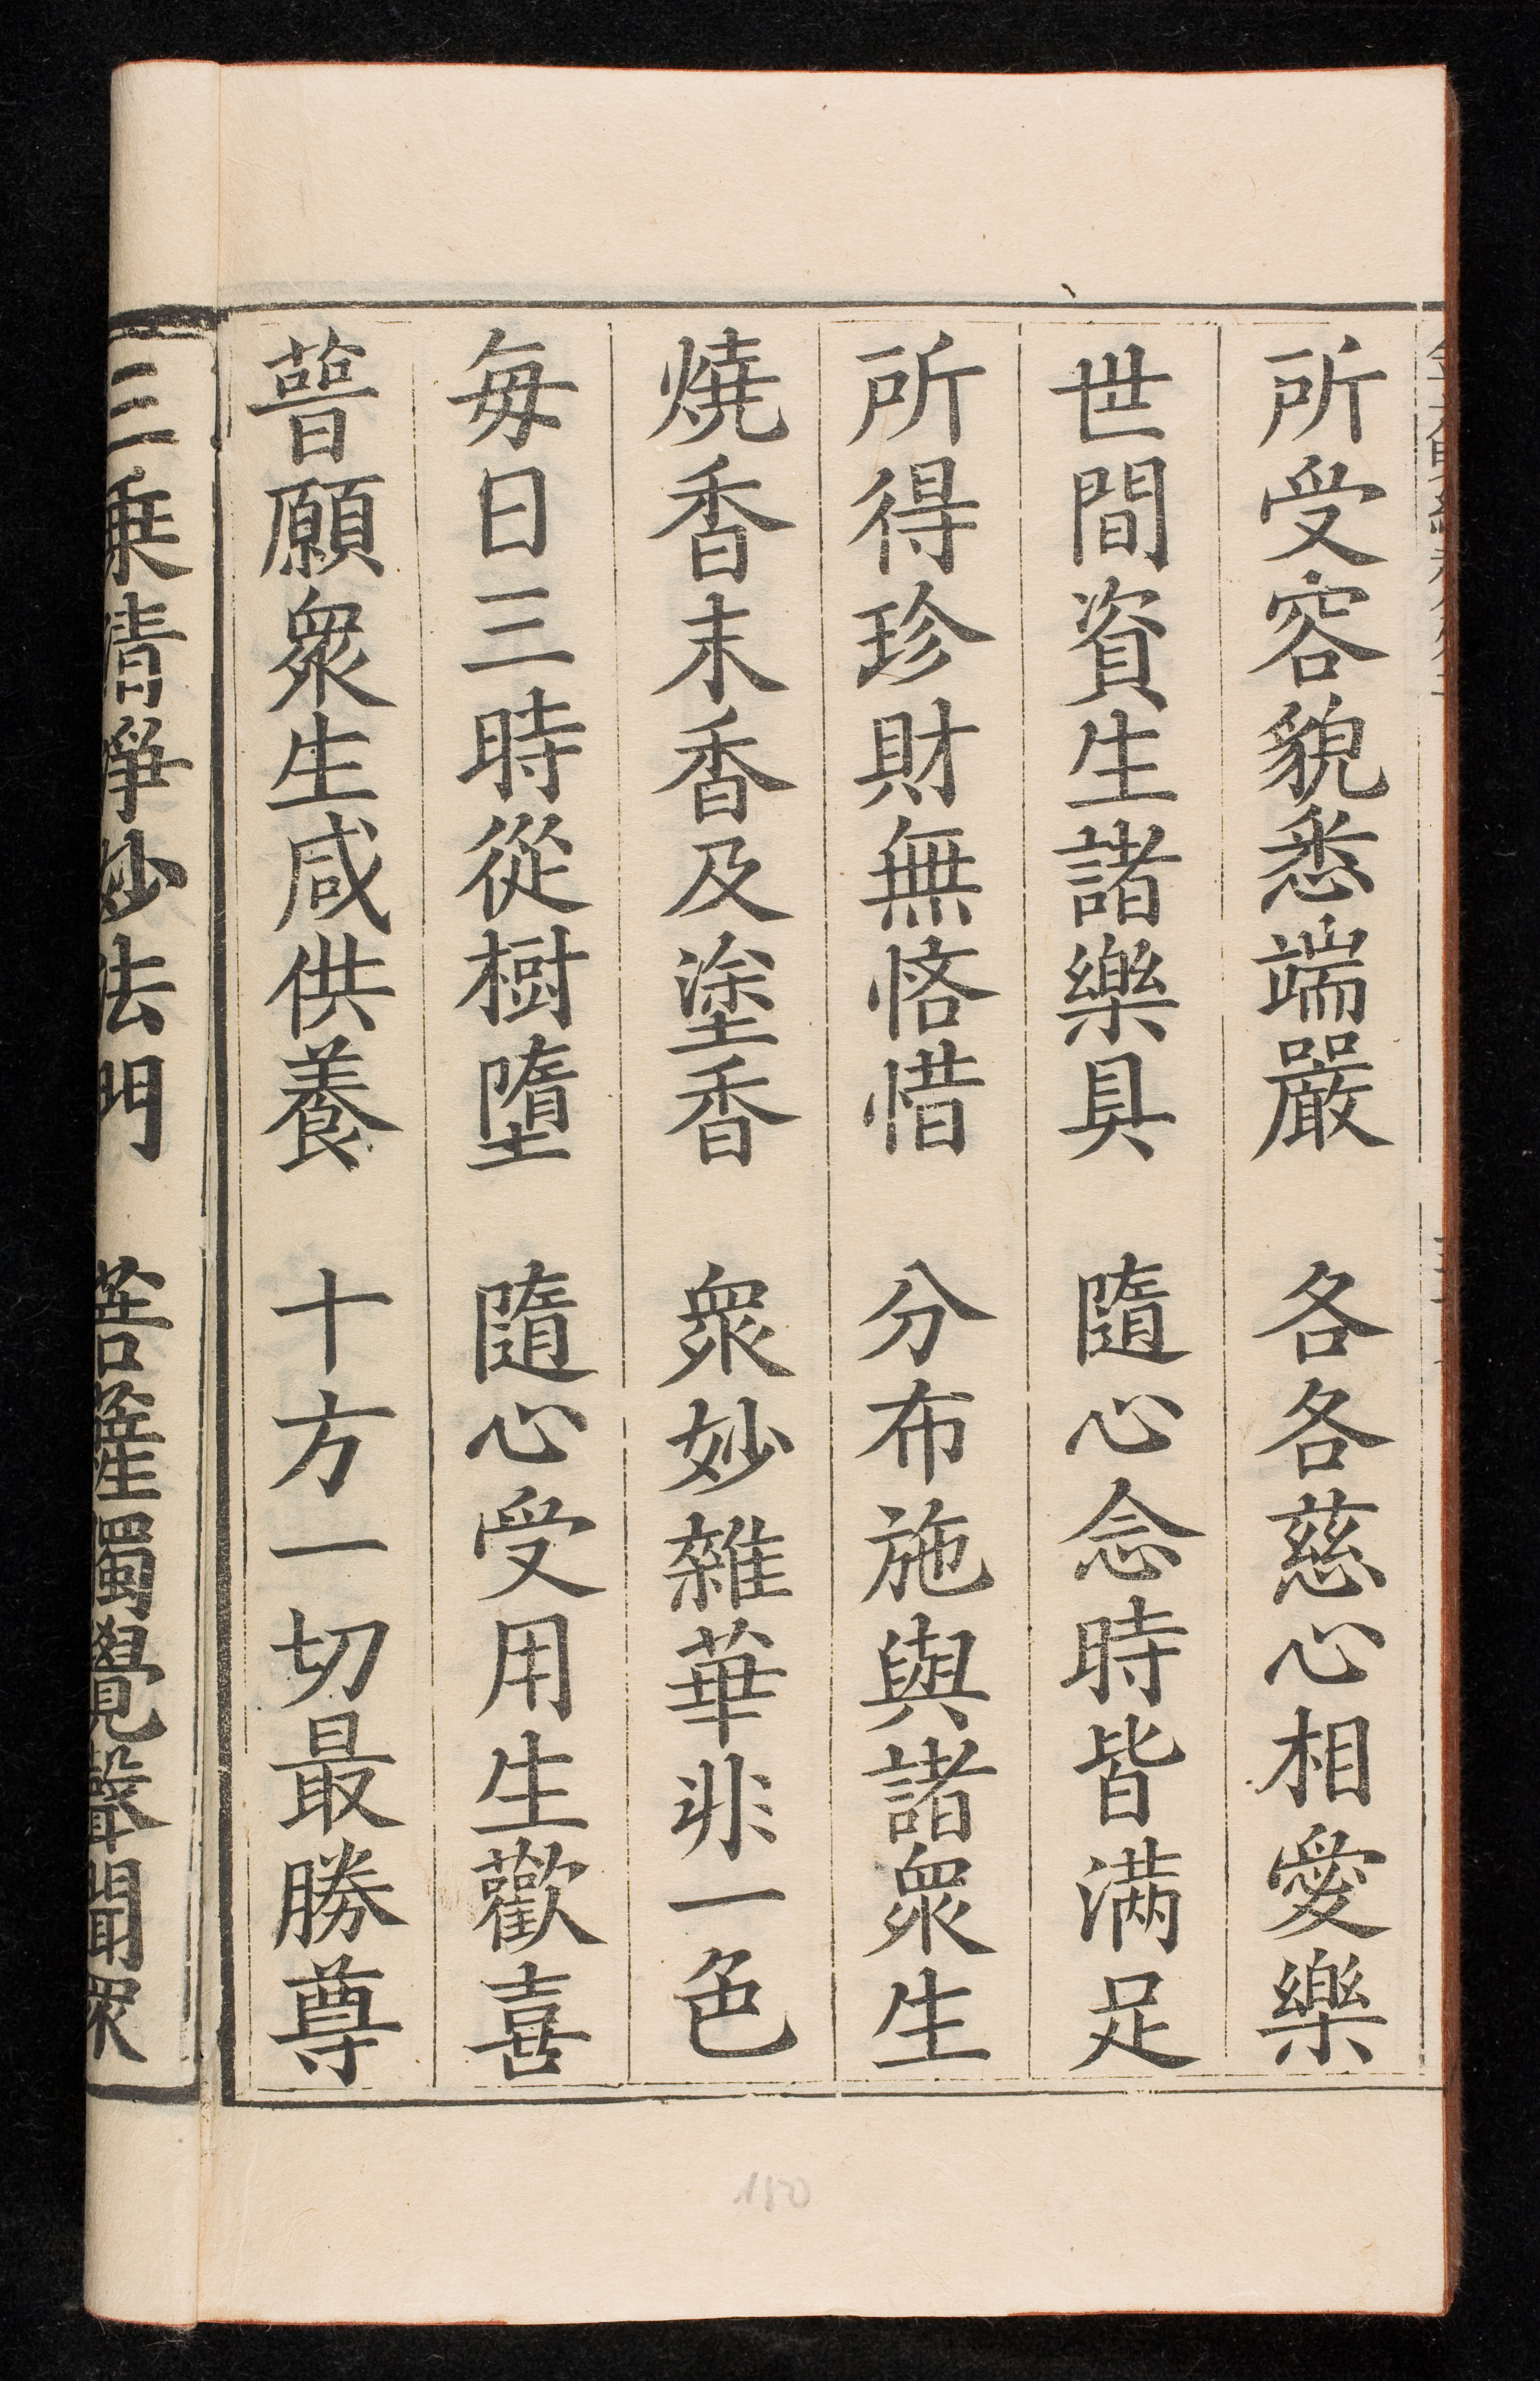 所受容貌悉端嚴　各各慈心相愛樂
世間資生諸樂具　隨心念時皆滿足
所得珍財無悋惜　分布施與諸衆生
燒香末香及塗香　衆妙雜華非一色
每日三時從樹墮　隨心受用生歡喜
普願衆生咸供養　十方一切最勝尊
三乘清淨妙法門　菩薩獨覺聲聞衆
150